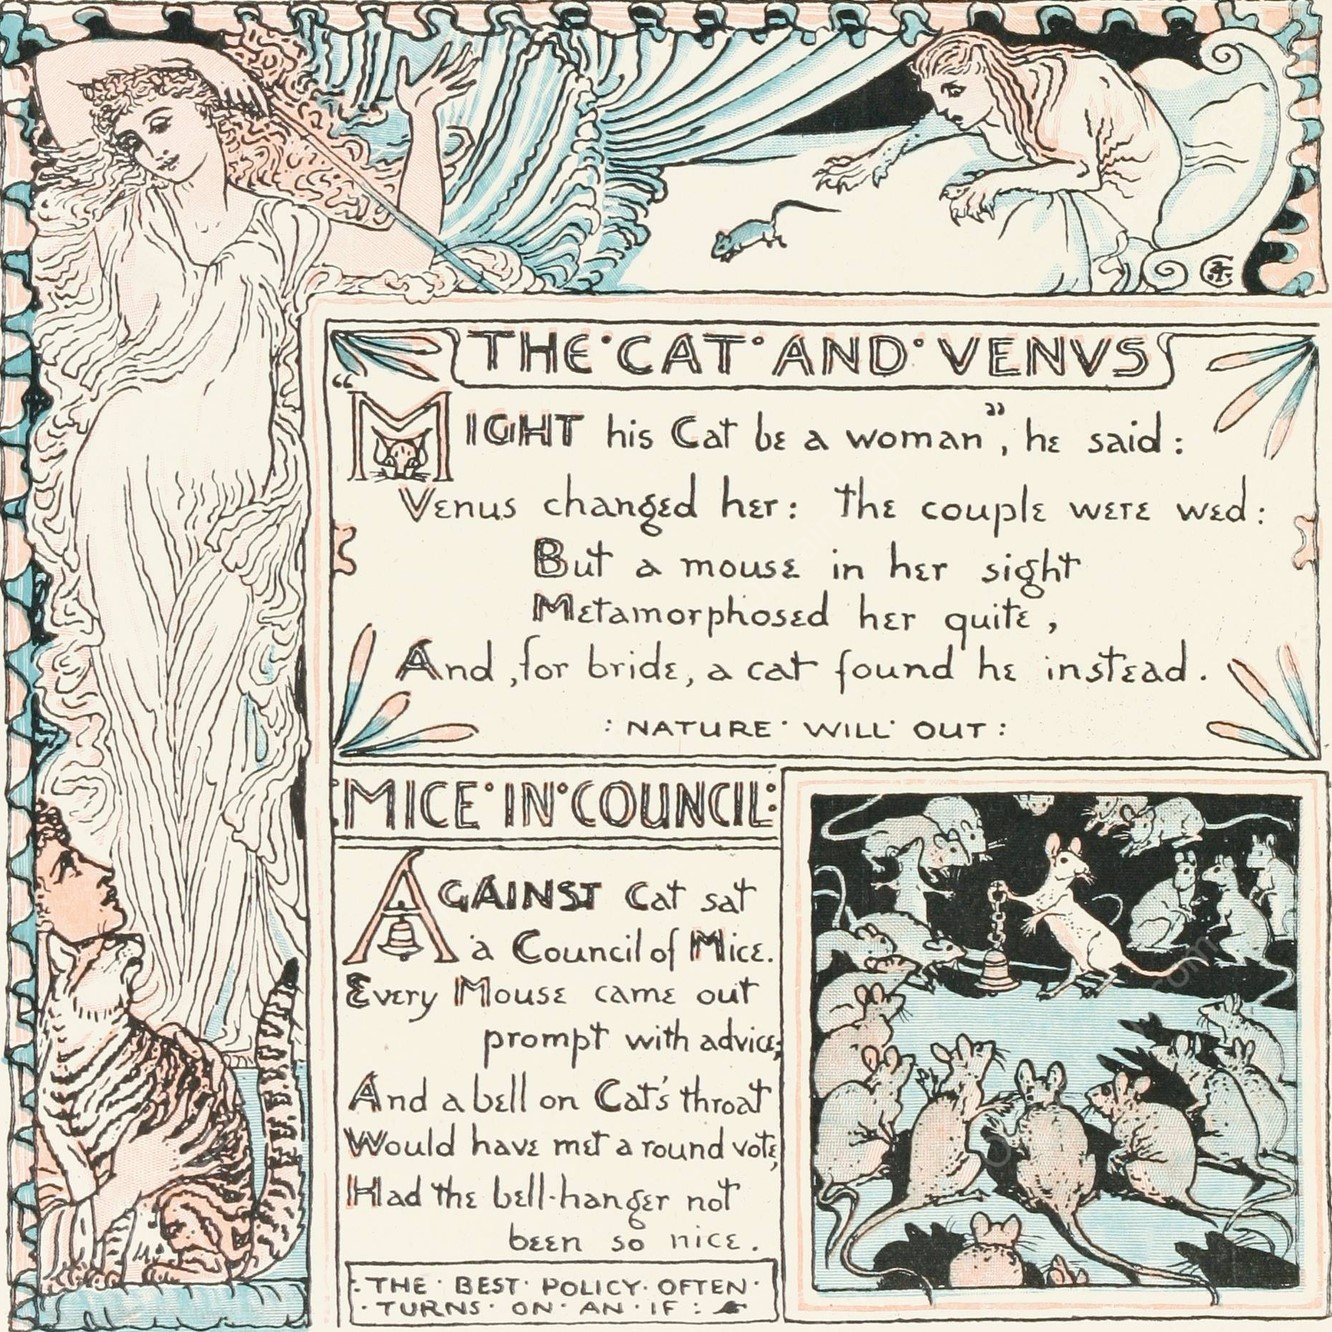 THE·CAT·AND·VENVS
"MIGHT his Cat be a woman", he said:
Venus changed her: the couple were wed:
But a mouse in her sight
Metamorphosed her quite,
And, for bride, a cat found he instead.
:NATURE·WILL·OUT:
MICE·IN·COUNCIL:
AGAINST Cat sat
a Council of Mice.
Every Mouse came out
prompt with advice;
And a bell on Cat's throat
Would have met a round vote,
Had the bell-hanger not
been so nice.
·THE·BEST·POLICY·OFTEN·
·TURNS·ON·AN·IF: